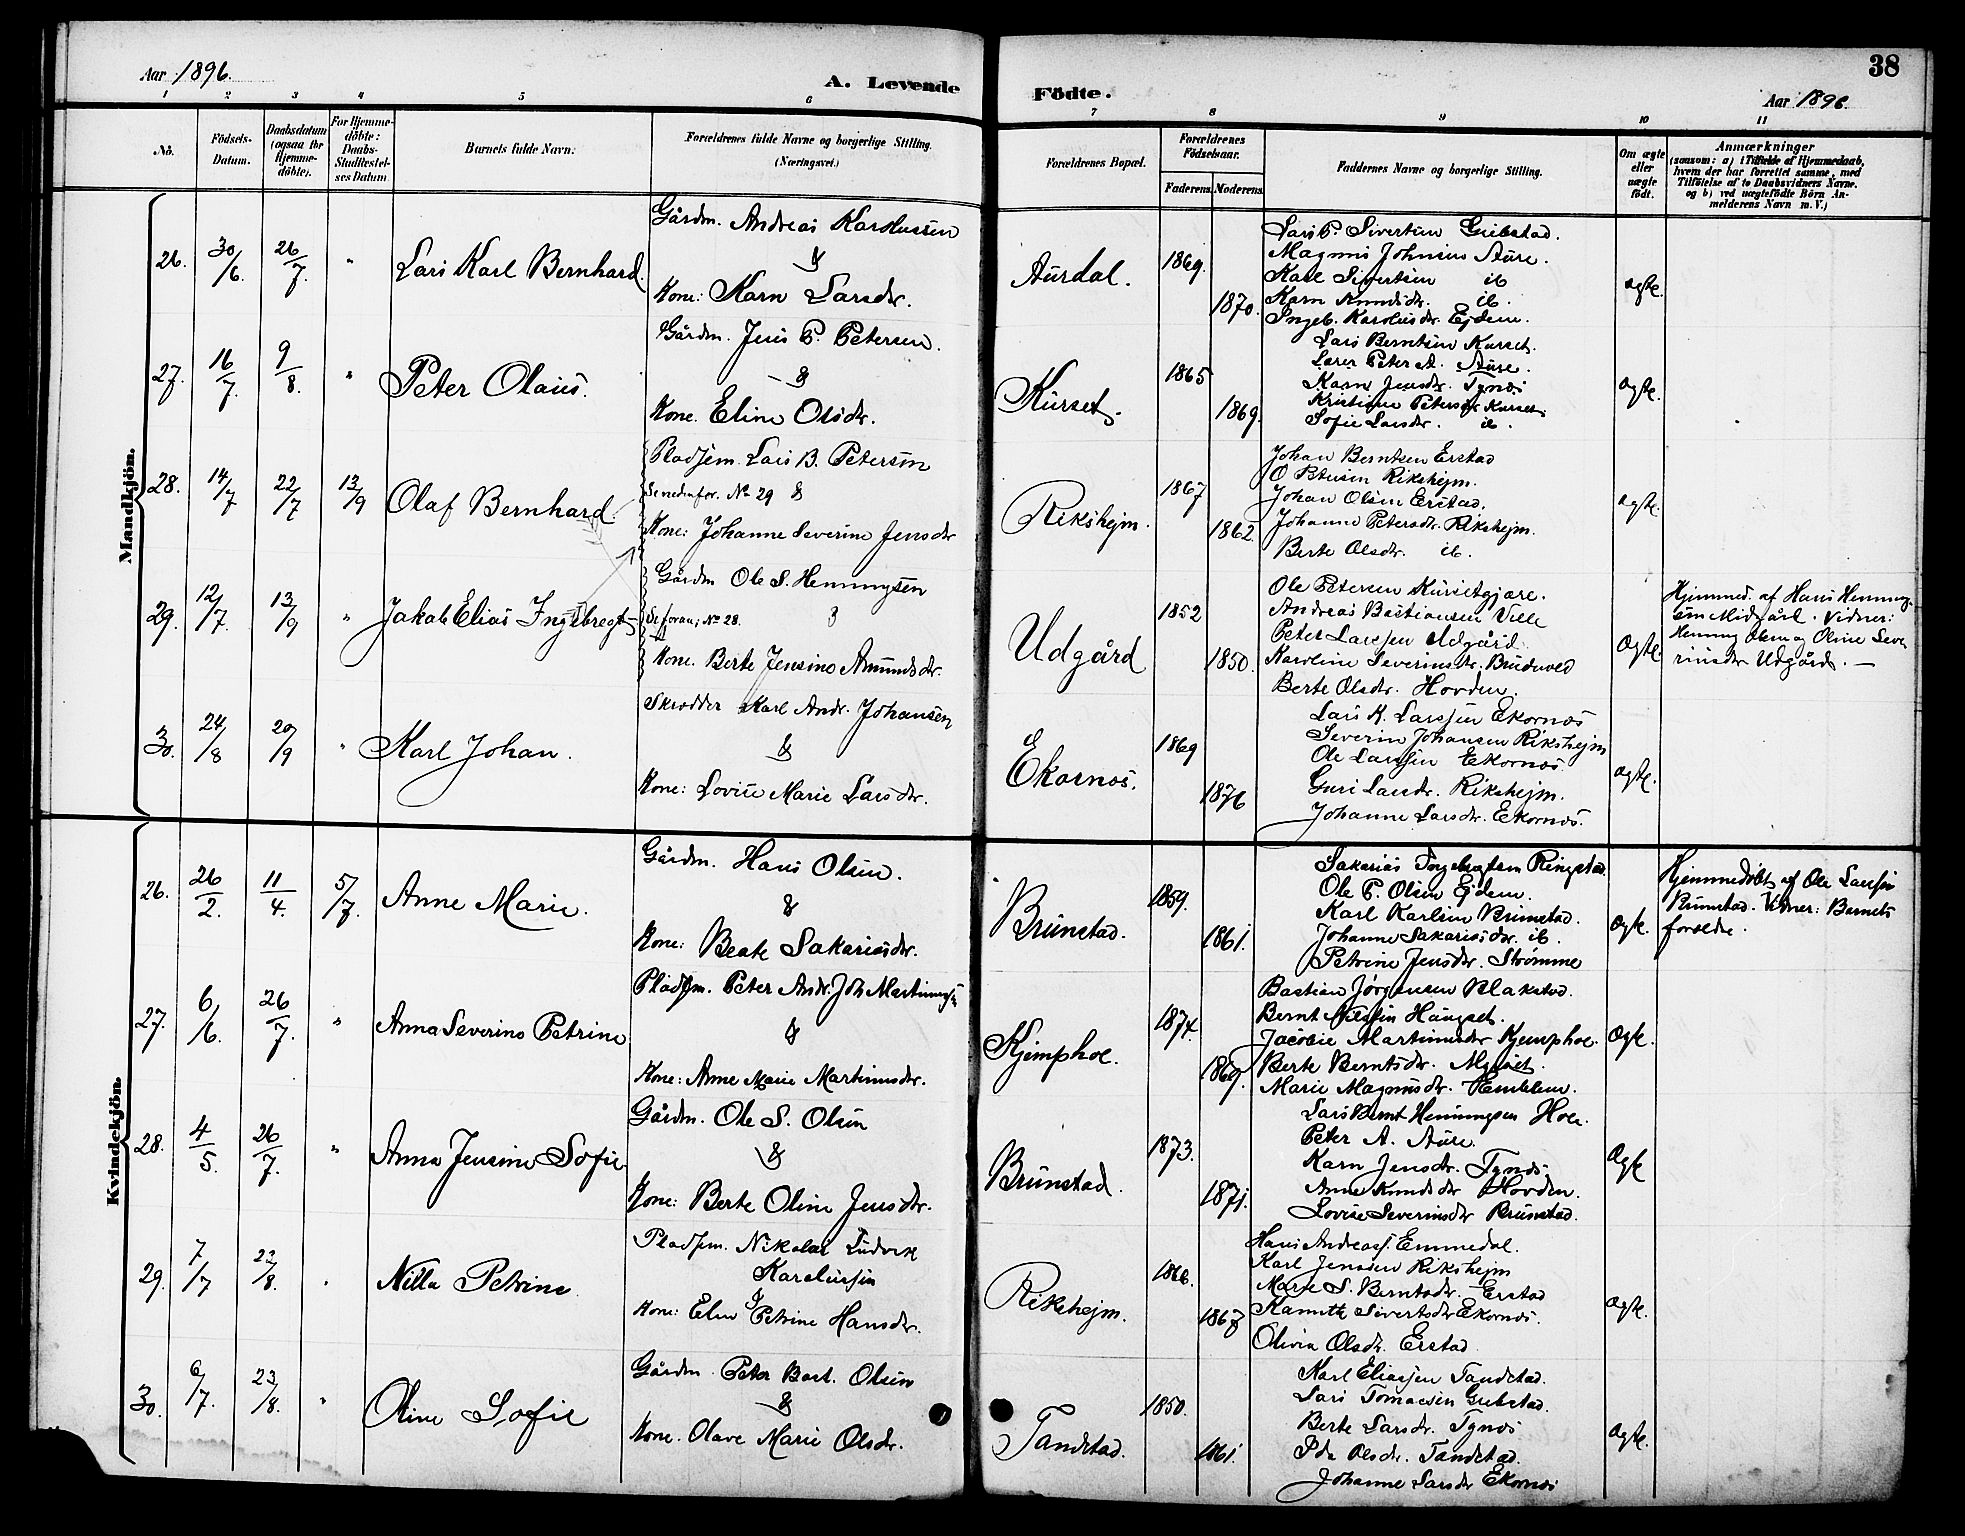 Aar 1896.
A. Levende
Födte.
38
Aar 1896.
1 2 3 4 5 6 7 8 9 10 11
No.
Födsels-Datum.
Daabsdatum (ogsaa for Hjemme-döbte).
For Hjemme-döbte: Daabs-Stadfestel-ses Datum.
Barnets fulde Navn:
Forældrenes fulde Navne og borgerlige Stilling.
(Næringsvei.)
Forældrenes Bopæl.
Forældrenes Födselsaar.
Faderens. Moderens.
Faddernes Navne og borgerlige Stilling.
Om ægte eller uægte födt.
Anmærkninger
(saasom: a) i Tilfælde af Hjemmedaab,
hvem der har forrettet samme, med
Tilföielse af to Daabsvidners Navne,
og b) ved uægtefödte Börn An-
melderens Navn m. V.)
Mandkjön.
26. 30/6. 26/7. " Lars Karl Bernhard.
Gårdm. Andreas Karolussen
&
Kone: Karn Larsdr.
Aurdal. 1869. 1870.
Lars P. Sivertsen Grebstad.
Magnus Johnsen Aure.
Karl Sivertsen ib
Karn Knudsdr. ib.
Ingeb. Karolusdr. Ejdem.
ægte.
27. 16/7. 9/8. " Peter Olaus.
Gårdm. Jens P. Petersen.
&
Kone. Eline Olsdr.
Kurset. 1865 1869.
Lars Berntsen Kurset.
Lærer Peter A. Aure.
Karn Jensdr. Tynæs
Kristiane Petersdr Kurset.
Sofie Larsdr. ib.
ægte.
28. 14/7 22/7 13/9 Olaf Bernhard.
Pladsem. Lars B. Petersen
Se nedenfor. No 29 &
Kone: Johanne Severine Jensdr
Rikshejm. 1867 1862.
Johan Berntsen Erstad
O Petersen Rikshejm.
Johan Olsen Erstad.
Johanne Petersdr. Rikshejm.
Berte Olsdr. ib.
ægte.
29. 12/7. 13/9 " Jakob Elias Ingebregt
Gårdm Ole S. Henningsen
Se foran; No 28. &
Kone. Berte Jensine Amundsdr.
Udgård 1852 1850.
Ole Petersen Kursetgjære.
Andreas Bastiansen Velle
Peter Larssen Udgård.
Karoline Severinsdr. Brudevold
Berte Olsdr. Hovden.
Ægte.
Hjemmed. af Hans Henning-
sen Midgård. Vidner:
Henning Olsen og Oline Seve
rinsdr Udgård. —
30. 24/8 20/9 " Karl Johan.
Skrædder Karl Andr. Johansen
&
Kone: Lovise Marie Larsdr.
Ekornæs. 1869 1876
Lars K. Larssen Ekornæs
Severin Johansen Rikshejm
Ole Larssen Ekornæs.
Guri Larsdr. Rikshejm.
Johanne Larsdr. Ekornæs.
ægte.
Kvindekjön.
26. 26/2. 11/4. 5/7 Anne Marie.
Gårdm. Hans Olsen.
&
Kone: Beate Sakariasdr.
Brunstad. 1859. 1861.
Sakarias Ingebregtsen Ringstad.
Ole P. Olsen Ejdem.
Karl Karlsen Brunstad.
Johanne Sakariasdr. ib.
Petrine Jensdr. Strømme
Ægte.
Hjemmedøbt af Ole Larssen
Brunstad. Vidner: Barnets
forældre.
27. 6/6. 26/7. " Anna Severine Petrine
Pladsm. Peter Andr. Joh Martinussen
&
Kone: Anne Marie Martinusdr.
Kjemphoe. 1874. 1869.
Bastian Jørgensen Blakstad.
Bernt Nilssen Haugset.
Jacobie Martinusdr Kjemphoe.
Berte Berntsdr. Myrset.
Marie Magnusdr. Emblem.
Ægte.
28. 4/5. 26/7. " Anna Jensine Sofie
Gårdm. Ole S. Olsen
&
Kone: Berte Oline Jensdr.
Brunstad. 1873. 1871.
Lars Bernt Henningsen Hole.
Peter A. Aure.
Karn Jensdr. Tynæs
Anne Knudsdr Hovden.
Lovise Severinsdr Brunstad.
Ægte
29. 7/7 23/8. " Nilla Petrine
Pladsem. Nikolai Ludvik
Karolussen
&
Kone: Elen Petrine Hansdr.
Rikshejm. 1866. 1867
Hans Andreass. Emmedal.
Karl Jensen Rikshejm
Marie S. Berntsdr. Erstad
Kamitte Sivertsdr Ekornæs.
Olivia Olsdr. Erstad
Ægte.
30. 6/7. 23/8. " Oline Sofie
Gårdm. Peter Bast. Olsen
&
Kone. Olave Marie Olsdr.
Tandstad. 1850. 1861.
Karl Eliassen Tandstad.
Lars Tomassen Grebstad.
Berte Larsdr. Tynæs
Pda Olsdr. Tandstad.
Johanne Larsdr Ekornæs
Ægte.